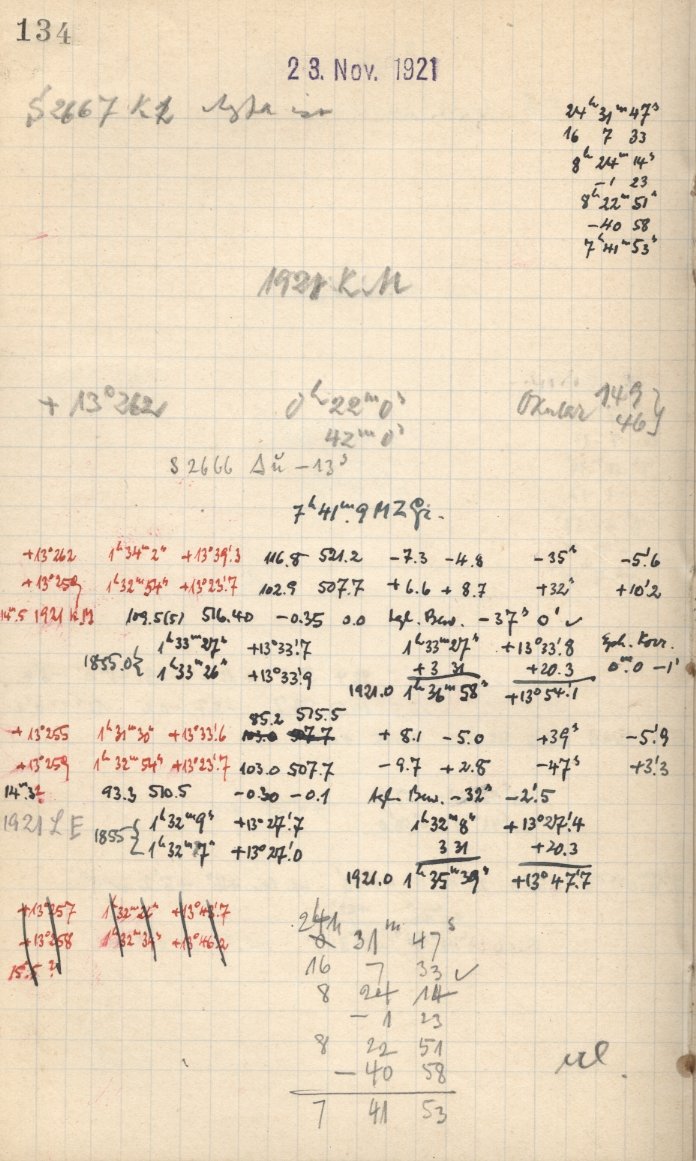 134
23. Nov. 1921
§ 2667 K2
24ʰ 31ᵐ 47ˢ
16 7 33
8ʰ 24ᵐ 14ˢ
-1 23
8ʰ 22ᵐ 51ˢ
-40 58
7ʰ 41ᵐ 53ˢ
1921 KM
+ 13°262
0ʰ 22ᵐ 0ˢ
42ᵐ 0ˢ
Okular 149 } 46
S 2666 Δu -13ˢ
7ʰ 41ᵐ.9 MZ
+13°262 1ʰ34ᵐ2ˢ +13°39'.3 116.8 521.2 -7.3 -4.8 -35ˢ -5'.6
+13°259 1ʰ32ᵐ54ˢ +13°23'.7 102.9 507.7 +6.6 +8.7 +32ˢ +10'.2
14ᵐ.5 1921 KM 109.5(5) 516.40 -0.35 0.0 tgl. Bew. -37ˢ 0' ✓
1855.0 { 1ʰ33ᵐ27ˢ +13°33'.7 1ʰ33ᵐ27ˢ +13°33'.8 Eph. Korr.
1ʰ33ᵐ26ˢ +13°33'.9 +3 31 +20.3 0ᵐ.0 -1'
1921.0 1ʰ36ᵐ58ˢ +13°54'.1
85.2 515.5
+13°255 1ʰ31ᵐ30ˢ +13°33'.6 103.0 507.7 +8.1 -5.0 +39ˢ -5'.9
+13°259 1ʰ32ᵐ54ˢ +13°23'.7 103.0 507.7 -9.7 +2.8 -47ˢ +3'.3
14ᵐ.3 93.3 510.5 -0.30 -0.1 tgl. Bew. -32ˢ -2'.5
1921 LE 1855 { 1ʰ32ᵐ9ˢ +13°27'.7 1ʰ32ᵐ8ˢ +13°27'.4
1ʰ32ᵐ7ˢ +13°27'.0 3 31 +20.3
1921.0 1ʰ35ᵐ39ˢ +13°47'.7
+13°257
+13°258 +13°46.2
15.5 ?
24h 31ᵐ 47ˢ
16 7 33 ✓
8 24 14
-1 23
8 22 51
-40 58
7 41 53